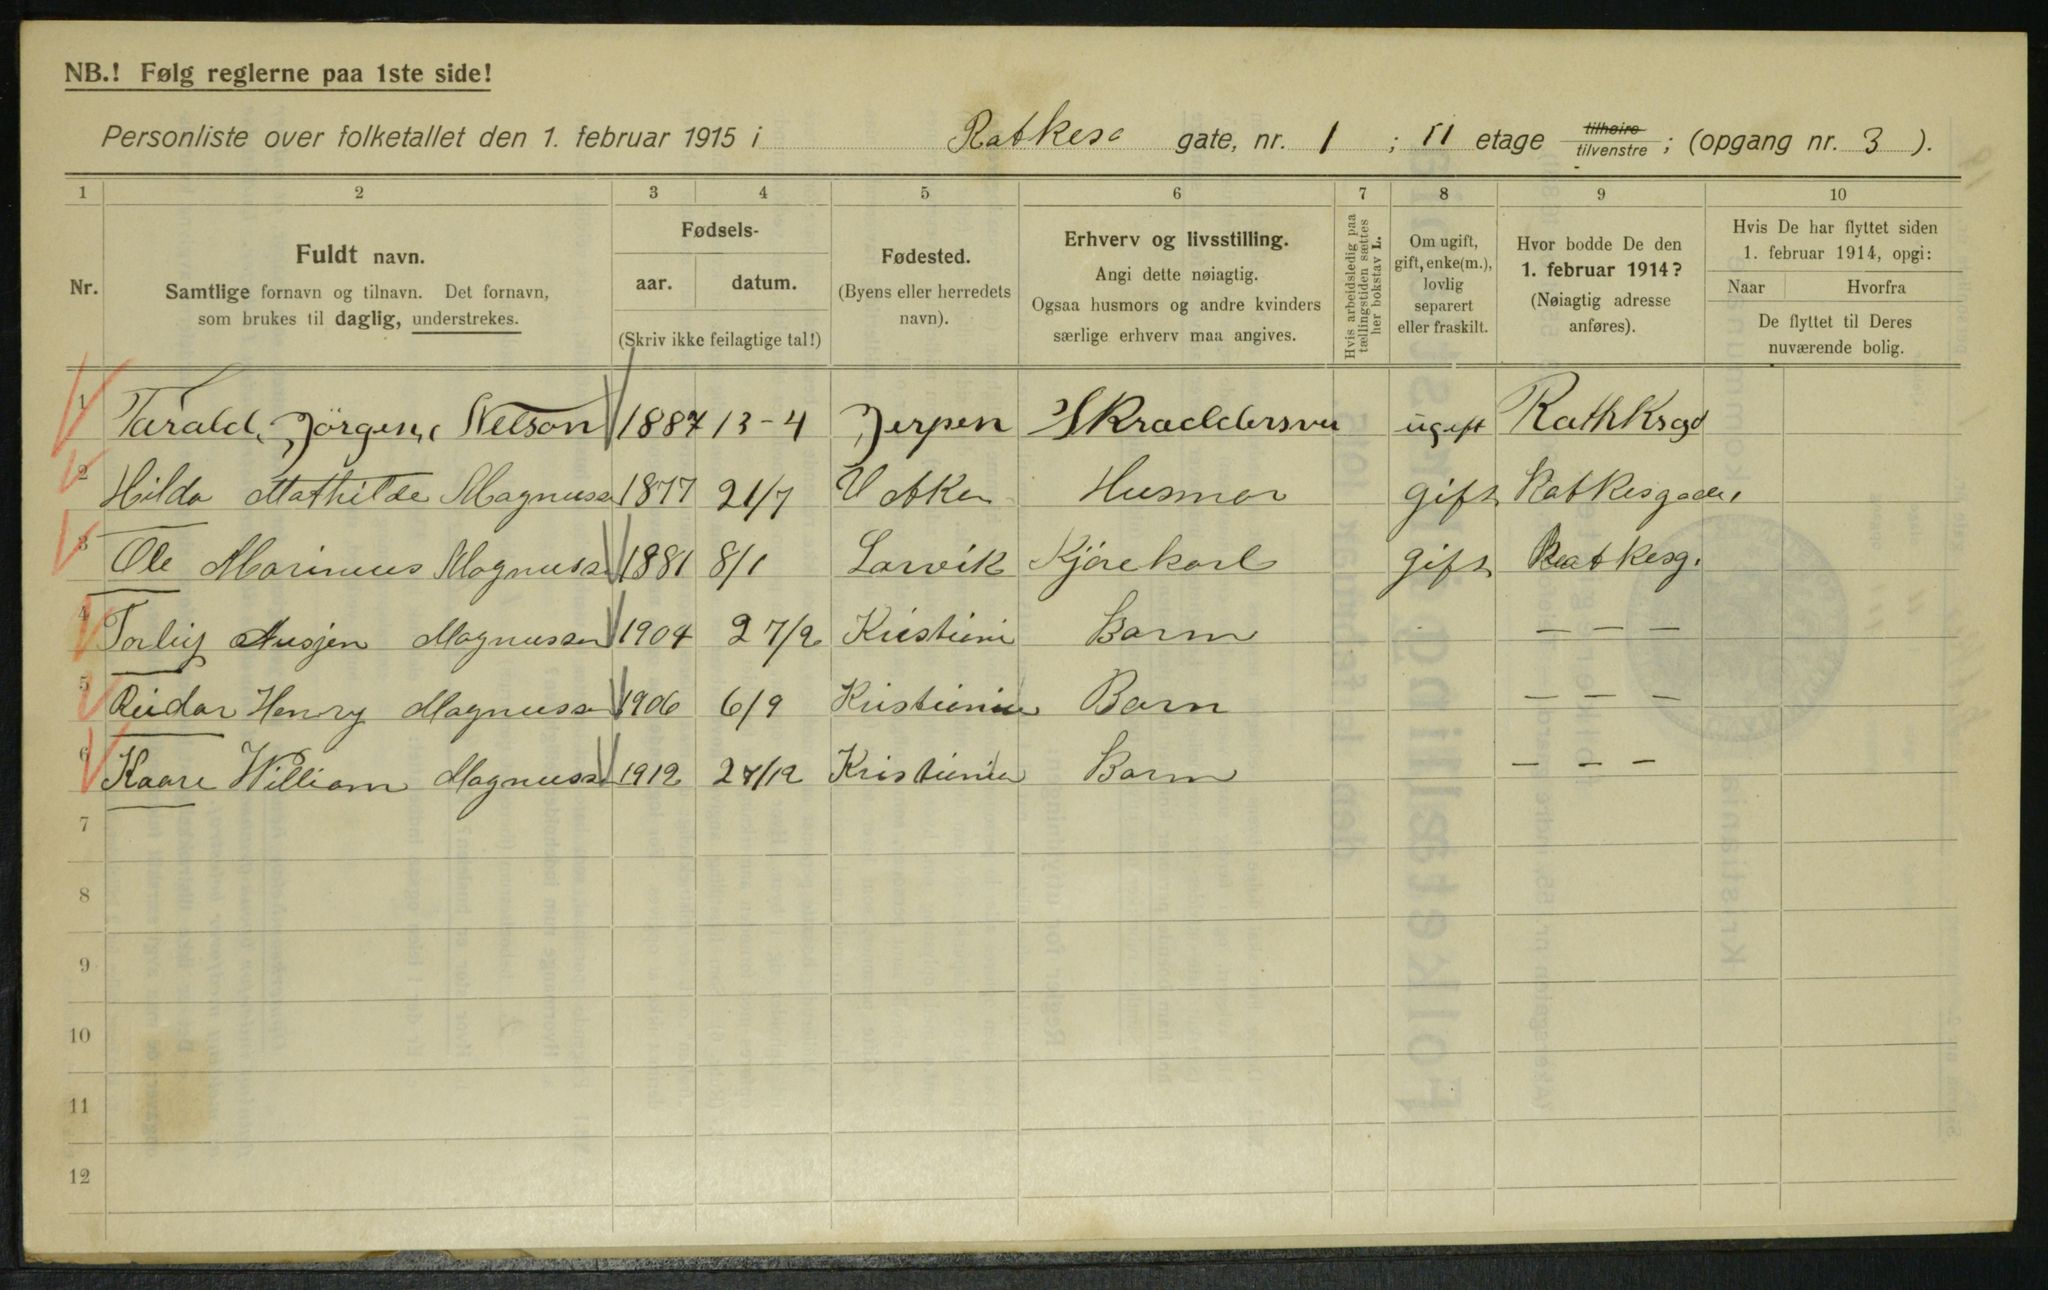 NB.! Følg reglerne paa 1ste side!
Personliste over folketallet den 1. februar 1915 i Ratkes gate, nr. 1 ; II etage tilhøire tilvenstre ; (opgang nr. 3 ).
1 2 3 4 5 6 7 8 9 10
Nr.
Fuldt navn.
Samtlige fornavn og tilnavn. Det fornavn,
som brukes til daglig, understrekes.
Fødsels-
aar. datum.
(Skriv ikke feilagtige tal!)
Fødested.
(Byens eller herredets
navn).
Erhverv og livsstilling.
Angi dette nøiagtig.
Ogsaa husmors og andre kvinders
særlige erhverv maa angives.
Hvis arbeidsledig paa
tællingstiden sættes
her bokstav L.
Om ugift,
gift, enke(m.),
lovlig
separert
eller fraskilt.
Hvor bodde De den
1. februar 1914?
(Nøiagtig adresse
anføres).
Hvis De har flyttet siden
1. februar 1914, opgi:
Naar Hvorfra
De flyttet til Deres
nuværende bolig.
1 Tarald Jörgen Nelson 1887 13-4 Jerpen Skraddersve ugift
2 Hilda Mathilde Magnuss 1877 21/7 V Aker Husmor gift Ratkesgade 1
3 Ole Marinius Magnuss 1881 8/1 Larvik Kjørekarl gift Ratkesg.
4 Magnussen 1904 27/2 Kristiania Barn — — —
5 Reidar Henry Magnuss 1906 6/9 Kristiania Barn — — —
6 Kaare William Magnuss 1912 27/12 Kristiania Barn — — —
7
8
9
10
11
12